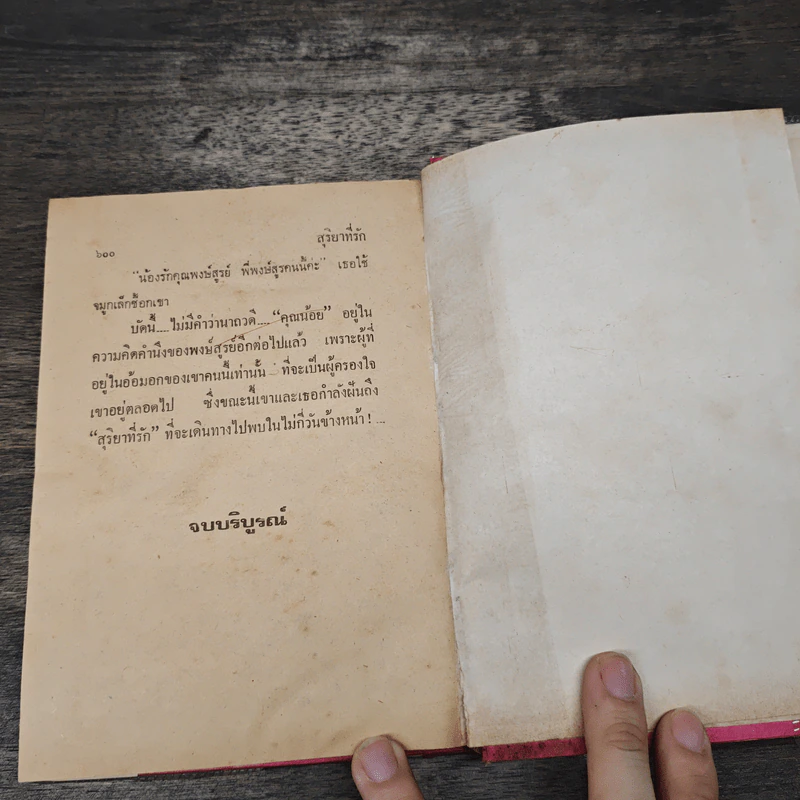 ๖๐๐
สุริยาที่รัก
“น้องรักคุณพงษ์สูรย์ พี่พงษ์สูรคนนี้ค่ะ” เธอใช้
จมูกเล็กซื้อกเขา
บัดนี้....ไม่มีคำว่านาถวดี....“คุณน้อย” อยู่ใน
ความคิดคำนึงของพงษ์สูรย์อีกต่อไปแล้ว เพราะผู้ที่
อยู่ในอ้อมอกของเขาคนนี้เท่านั้น ที่จะเป็นผู้ครองใจ
เขาอยู่ตลอดไป ซึ่งขณะนี้เขาและเธอกำลังฝันถึง
“สุริยาที่รัก” ที่จะเดินทางไปพบในไม่กี่วันข้างหน้า! ...
จบบริบูรณ์